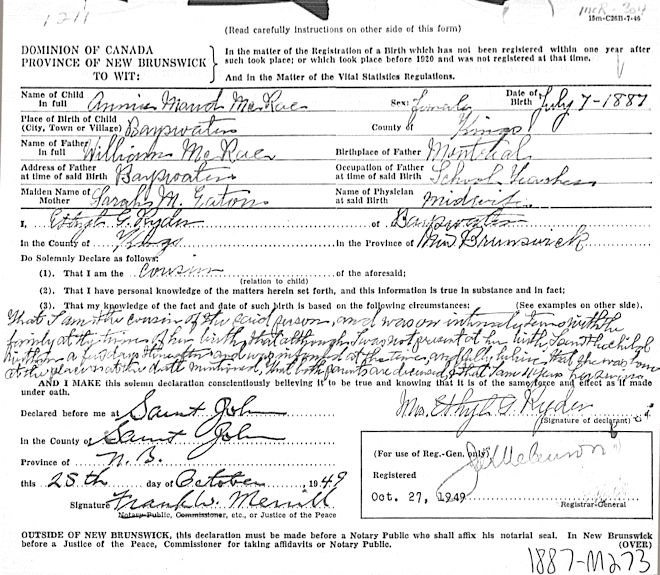 1211
McR-304
(Read carefully instructions on other side of this form)
15m-C26B-7-46
DOMINION OF CANADA
PROVINCE OF NEW BRUNSWICK
TO WIT:
In the matter of the Registration of a Birth which has not been registered within one year after
such took place; or which took place before 1920 and was not registered at that time.
And in the Matter of the Vital Statistics Regulations.
Name of Child in full Annie Maud McRae Sex: Female Date of Birth July 7-1887
Place of Birth of Child (City, Town or Village) Bayswater County of Kings
Name of Father in full William McRae Birthplace of Father Montreal
Address of Father at time of said Birth Bayswater Occupation of Father at time of said Birth School Teacher
Maiden Name of Mother Sarah M. Eaton Name of Physician at said Birth midwife
I, Ethyl G. Ryder of Bayswater
In the County of Kings in the Province of New Brunswick
Do Solemnly Declare as follows:
(1). That I am the cousin of the aforesaid;
(relation to child)
(2). That I have personal knowledge of the matters herein set forth, and this information is true in substance and in fact;
(3). That my knowledge of the fact and date of such birth is based on the following circumstances: (See examples on other side).
That I am the cousin of the said person, and was on intimate terms with the
family at the time of her birth, that although I was not present at her birth I saw the child
within a few days thereafter and was informed at the time, and fully believe that she was born
at the place and at the date mentioned, that both parents are deceased, & that I am years her senior
AND I MAKE this solemn declaration conscientiously believing it to be true and knowing that it is of the same force and effect as if made
under oath.
Declared before me at Saint John
Mrs. Ethyl G. Ryder
(Signature of declarant)
In the County of Saint John
Province of N.B.
this 25th day of October 1949
Signature Frank W. Merrill
Notary Public, Commissioner, etc., or Justice of the Peace
(For use of Reg.-Gen. only)
Registered
Oct. 27, 1949
Registrar-General
OUTSIDE OF NEW BRUNSWICK, this declaration must be made before a Notary Public who shall affix his notarial seal. In New Brunswick
before a Justice of the Peace, Commissioner for taking affidavits or Notary Public.
(OVER)
1887-M273